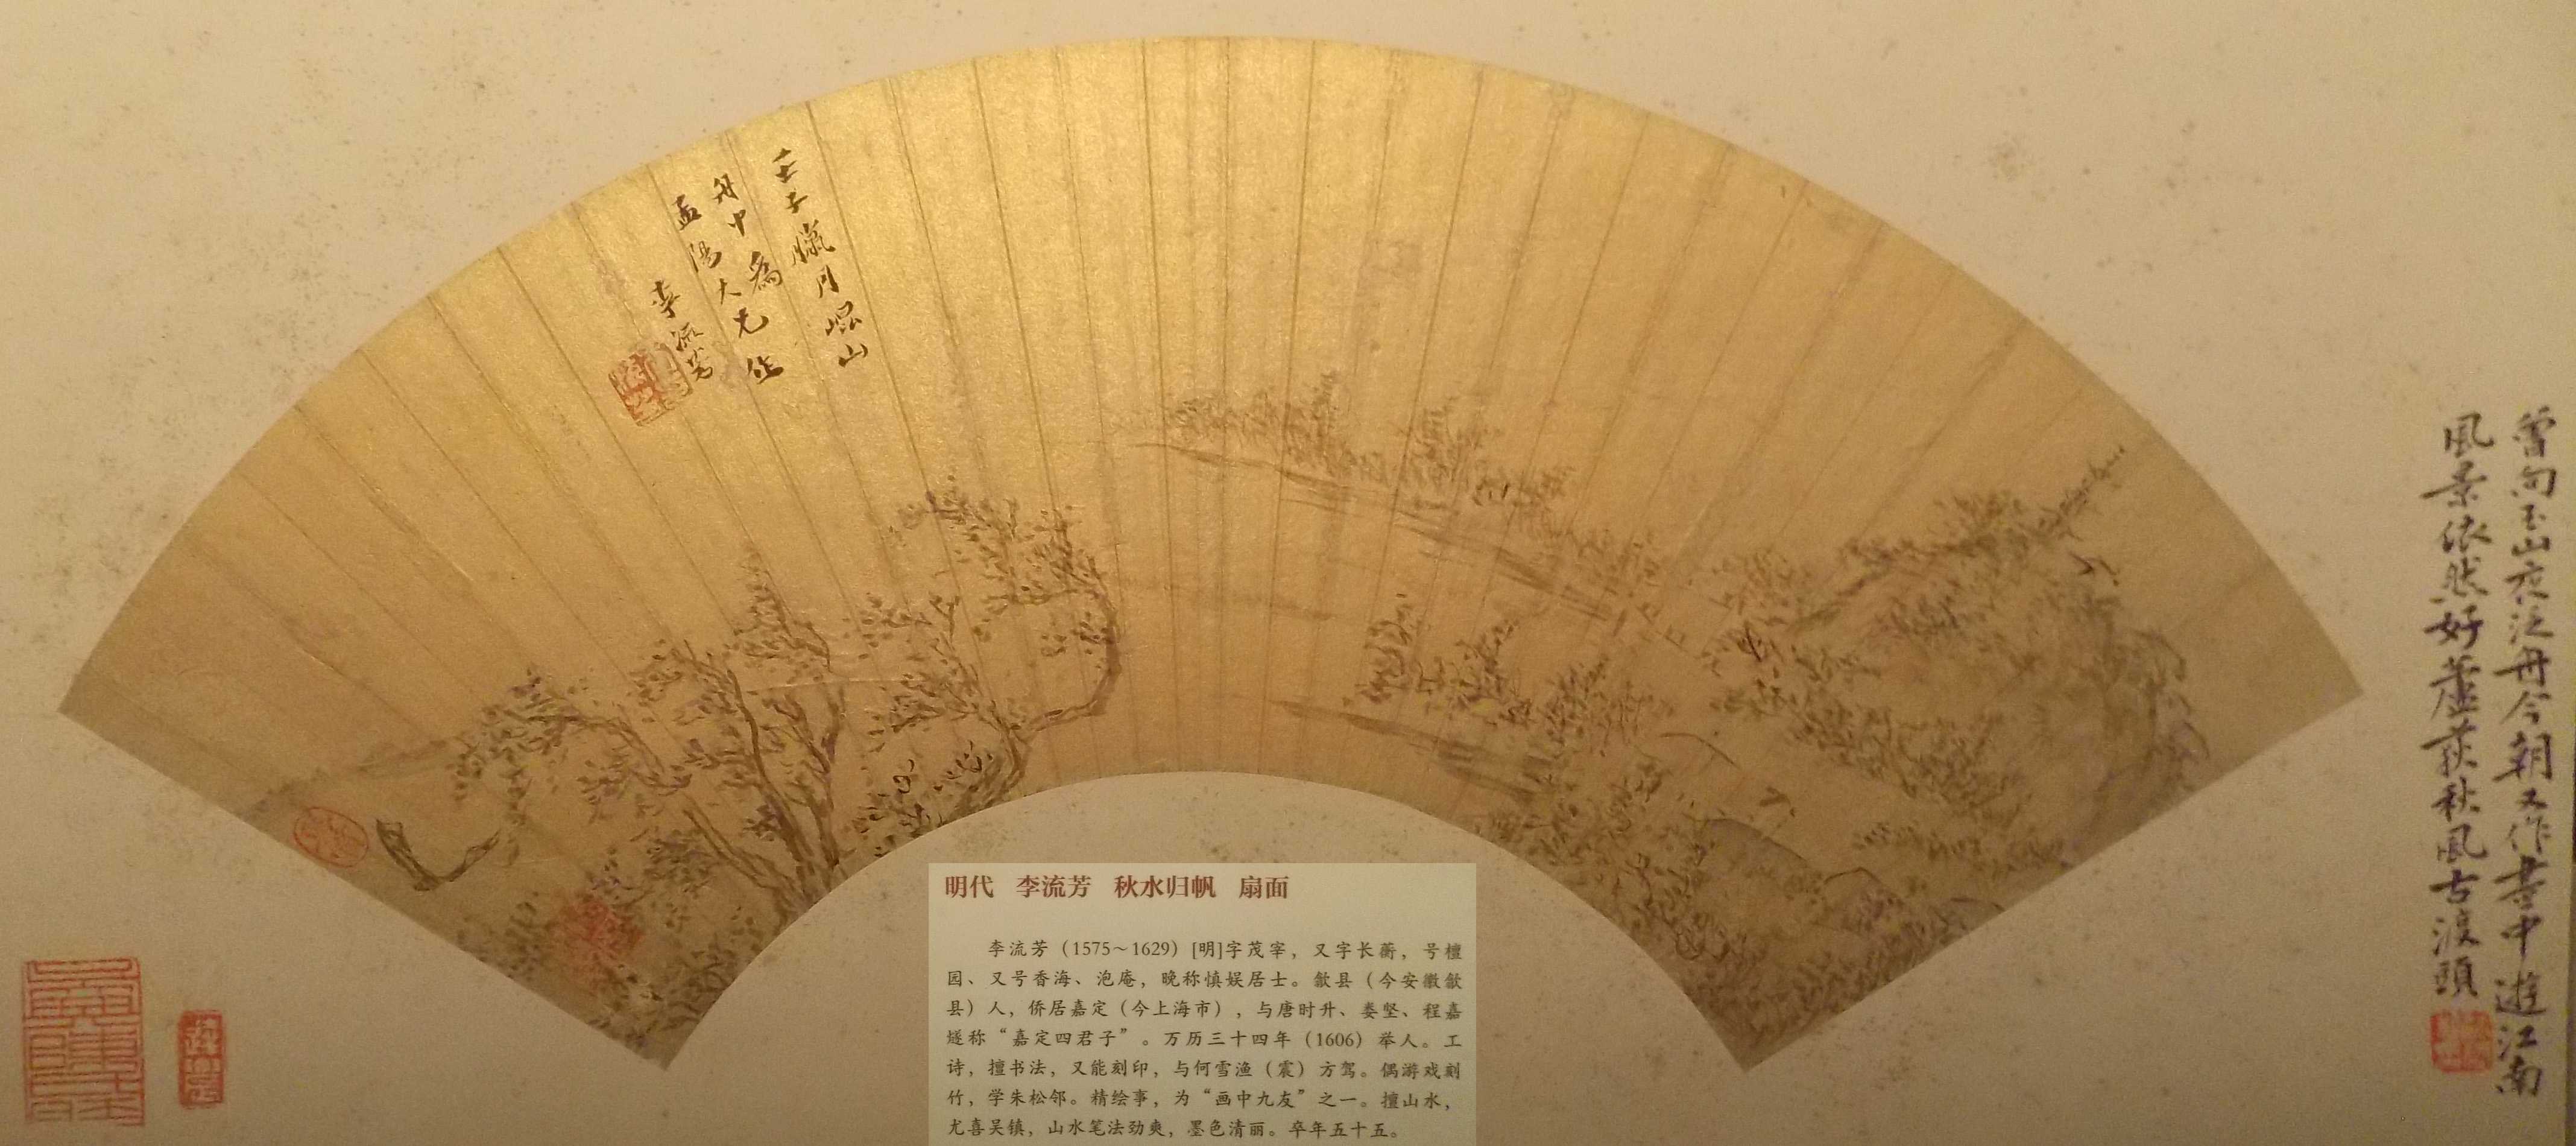 曾向玉山夜泛舟今朝又作畫中遊江南
風景依然好蘆荻秋風古渡頭
壬子臘月崐山
舟中為
孟陽大兄作
李流芳
明代 李流芳 秋水归帆 扇面
李流芳（1575～1629）[明]字茂宰，又字长蘅，号檀
园、又号香海、泡庵，晚称慎娱居士。歙县（今安徽歙
县）人，侨居嘉定（今上海市），与唐时升、娄坚、程嘉
燧称“嘉定四君子”。万历三十四年（1606）举人。工
诗，擅书法，又能刻印，与何雪渔（震）方驾。偶游戏刻
竹，学朱松邻。精绘事，为“画中九友”之一。擅山水，
尤喜吴镇，山水笔法劲爽，墨色清丽。卒年五十五。